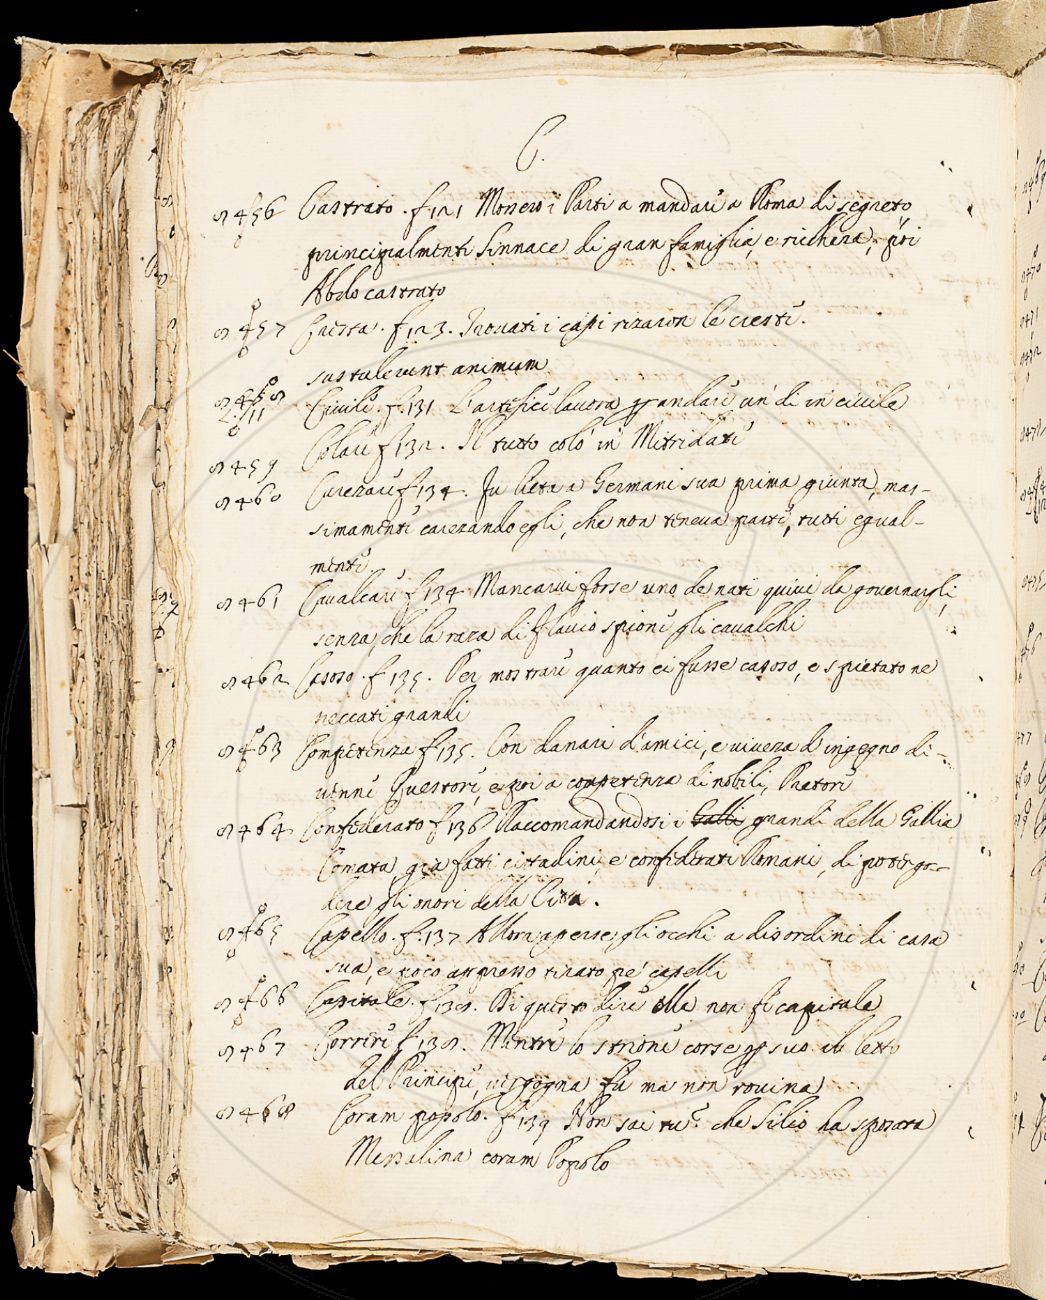 C.
456 Castrato. f. 121 Mossero i Parti a mandare a Roma di segreto
principalmente Sinnace di gran famiglia, e ricchezza; poi
Abdo castrato
457 Cresta. f. 123. Trovati i capi rizaron le creste.
sustulerunt animum
458 Civile. f. 131 L'artefice lavora grandare un dì in civile
459 Colare f. 132. Il tutto colò in Mitridate
460 Carezare f. 134. Fu lieta a Germani sua prima giunta, mas-
simamente carezando egli, che non teneva parte, tutti egual-
mente.
461 Cavalcare f. 134 Mancarvi forse uno de nati quivi da governargli,
senza, che la raza di Flavio spione gli cavalchi
462 Casoso. f. 135. Per mostrare quanto ei fusse casoso, e spietato ne
peccati grandi
463 Competenza f. 135. Con danari d'amici, e viveza d'ingegno di-
venne Questore, e poi a competenza di nobili, Pretore
464 Confederato f. 136 Raccomandandosi i Galli grandi della Gallia
Comata, già fatti cittadini, e confederati Romani, di poter go-
dere gli onori della Città.
465 Capello. f. 137 Allora aperse gli occhi a disordini di casa
sua, e poco appresso tirato pe' capelli
466 Capitale. f. 138. Di questo dire ella non fè capitale
467 Correre f. 138. Mentre lo strione corse per suo il letto
del Principe, vergogna fu ma non rovina
468 Coram popolo. f. 139 Non sai tu? che Silio ha sposata
Messalina coram Popolo